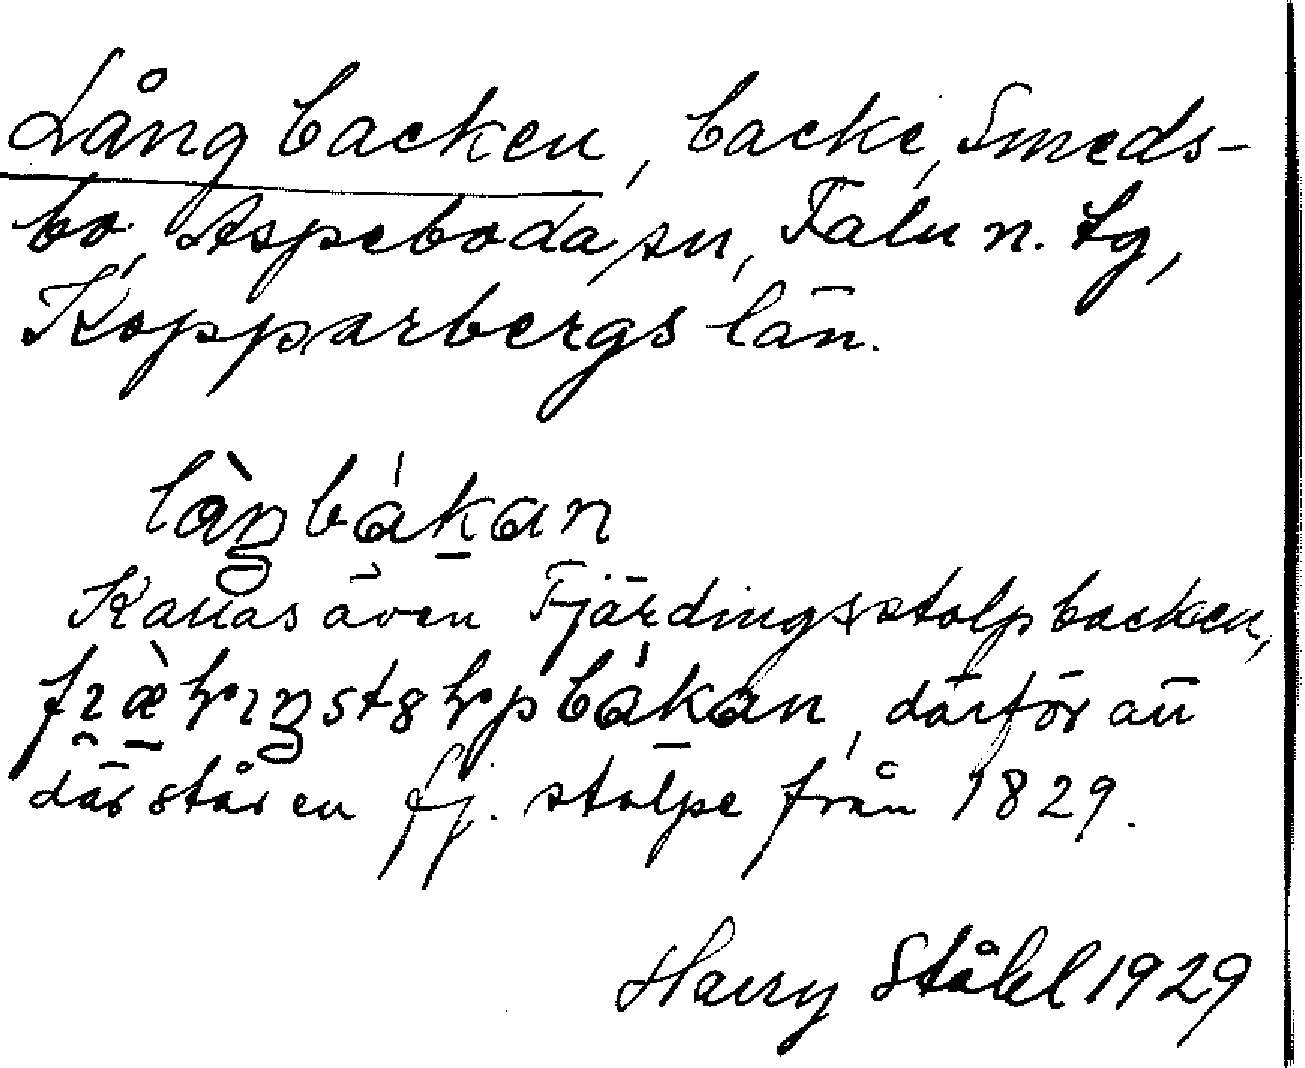 Långbacken, backe, Smeds-
bo, Aspeboda sn, Falu n. tg,
Kopparbergs län.
làŋbákan
Kallas även Fjärdingsstolpbacken,
därför att
där står en fj. stolpe från 1829.
Harry Ståhl 1929